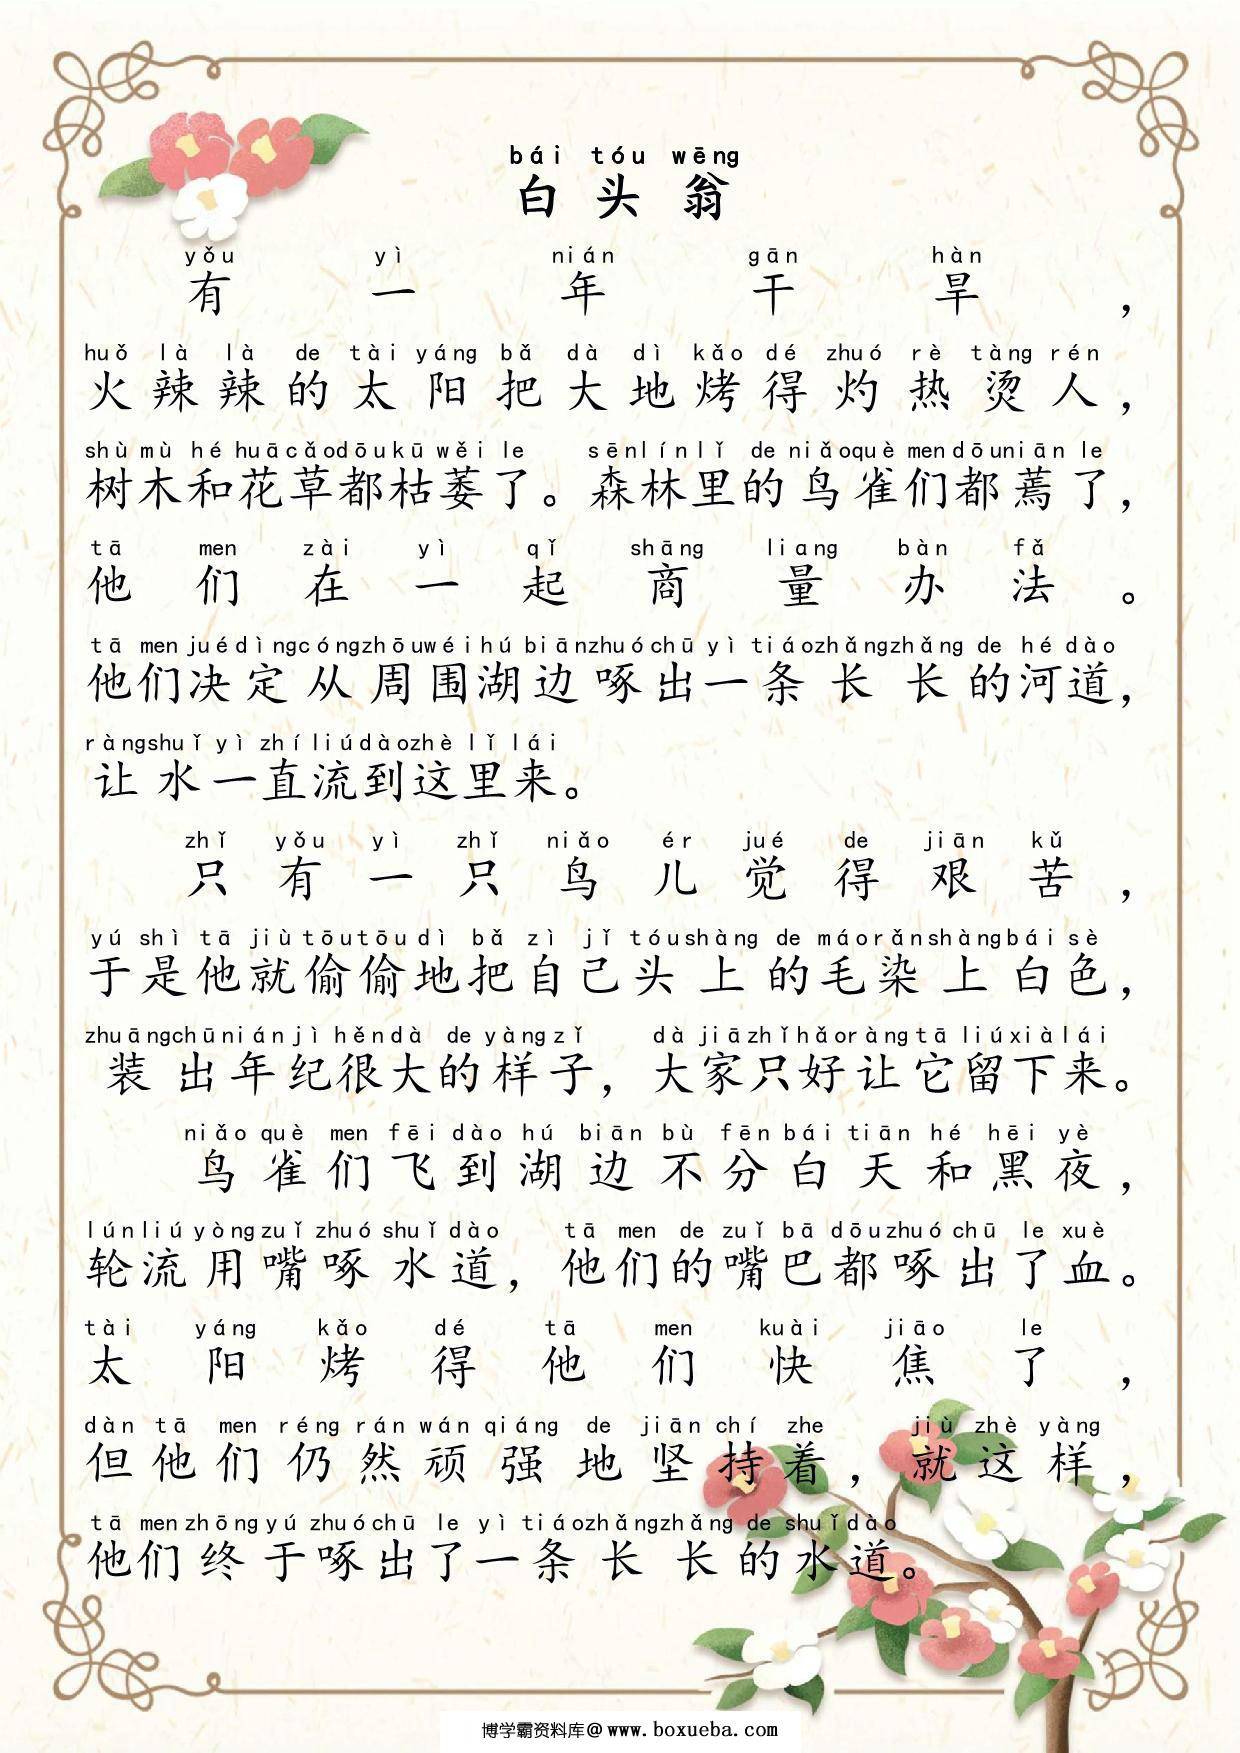 bái tóu wēng
白头翁
yǒu yì nián gān hàn
有一年干旱，
huǒ là là de tài yáng bǎ dà dì kǎo dé zhuó rè tàng rén
火辣辣的太阳把大地烤得灼热烫人，
shù mù hé huā cǎo dōu kū wěi le sēn lín lǐ de niǎo què men dōu niān le
树木和花草都枯萎了。森林里的鸟雀们都蔫了，
tā men zài yì qǐ shāng liang bàn fǎ
他们在一起商量办法。
tā men jué dìng cóng zhōu wéi hú biān zhuó chū yì tiáo zhǎng zhǎng de hé dào
他们决定从周围湖边啄出一条长长的河道，
ràng shuǐ yì zhí liú dào zhè lǐ lái
让水一直流到这里来。
zhǐ yǒu yì zhǐ niǎo ér jué de jiān kǔ
只有一只鸟儿觉得艰苦，
yú shì tā jiù tōu tōu dì bǎ zì jǐ tóu shàng de máo rǎn shàng bái sè
于是他就偷偷地把自己头上的毛染上白色，
zhuāng chū nián jì hěn dà de yàng zǐ dà jiā zhǐ hǎo ràng tā liú xià lái
装出年纪很大的样子，大家只好让它留下来。
niǎo què men fēi dào hú biān bù fēn bái tiān hé hēi yè
鸟雀们飞到湖边不分白天和黑夜，
lún liú yòng zuǐ zhuó shuǐ dào tā men de zuǐ bā dōu zhuó chū le xuè
轮流用嘴啄水道，他们的嘴巴都啄出了血。
tài yáng kǎo dé tā men kuài jiāo le
太阳烤得他们快焦了，
dàn tā men réng rán wán qiáng de jiān chí zhe jiù zhè yàng
但他们仍然顽强地坚持着，就这样，
tā men zhōng yú zhuó chū le yì tiáo zhǎng zhǎng de shuǐ dào
他们终于啄出了一条长长的水道。
博学霸资料库@www.boxueba.com